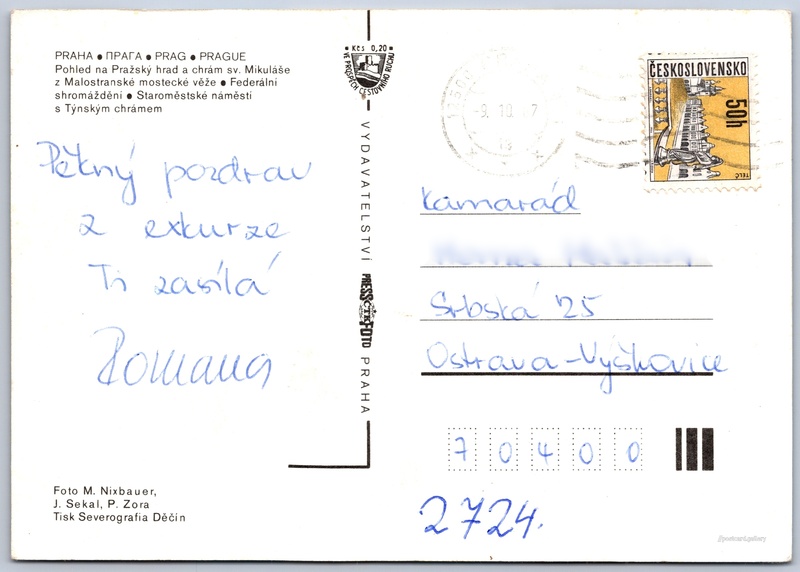 PRAHA ● ПРАГА ● PRAG ● PRAGUE
Pohled na Pražský hrad a chrám sv. Mikuláše
z Malostranské mostecké věže ● Federální
shromáždění ● Staroměstské náměstí
s Týnským chrámem
Pěkný pozdrav
z exkurze
Ti zasílá
Romana
Foto M. Nixbauer,
J. Sekal, P. Zora
Tisk Severografia Děčín
Kčs 0,20
VE PROSPĚCH CESTOVNÍHO RUCHU
VYDAVATELSTVÍ PRESSFOTO PRAHA
ČTK
-9. 10.
ČESKOSLOVENSKO
50h
TELČ
Kamarád
Srbská 25
Ostrava-Výškovice
7 0 4 0 0
2724.
postcard.gallery